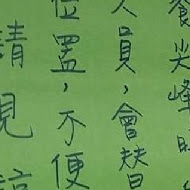 餐尖峰時
人員，會替
位置，不便
請見諒